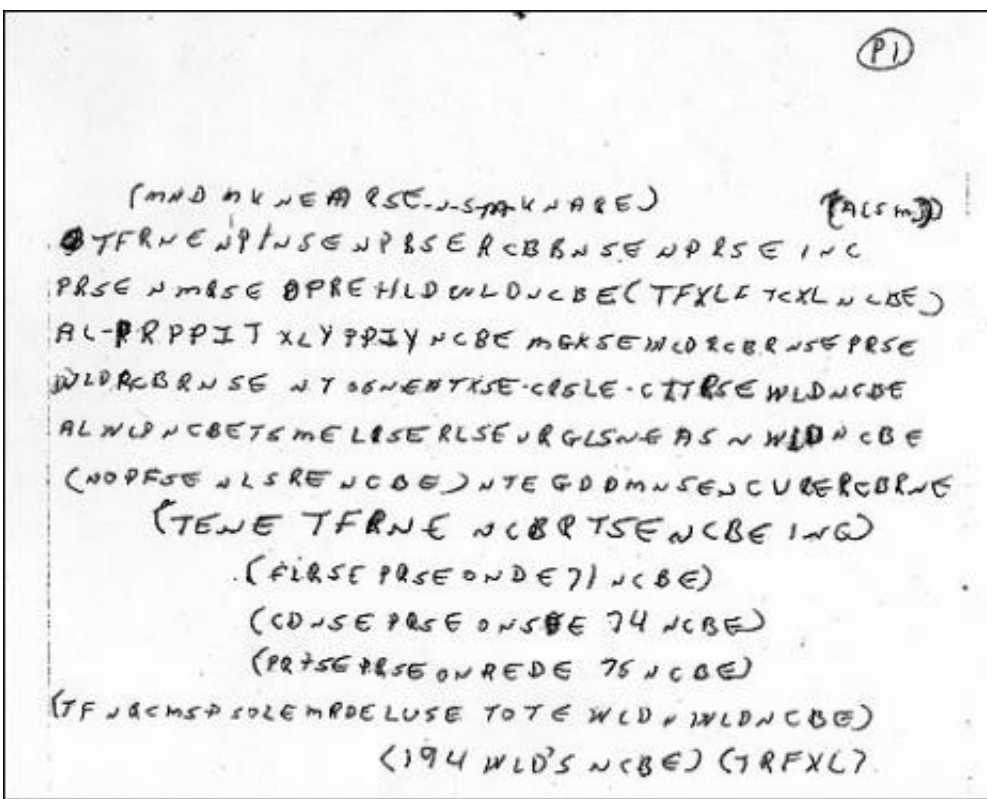 (P1)
(MND MKNEARSE-N-S-M-KNARE) (ACSM)
TFRNENPINSENPBSERCBBNSENPRSEINC
PRSENMRSEOPREHLDWLDNCBE(TFXLFTCXLNCBE)
AL-PRPPIT XLYPPIYNCBE MGKSEWLDRCBRNSEPRSE
WLDRCBRNSE NTOSNENTXSE-CRSLE-CITRSE WLDNCBE
ALWLDNCBETSMELRSERLSEURGLSNEASNWLDNCBE
(NOPFSENLSRENCBE)NTEGDDMNSENCURERCBRNE
(TENE TFRNE NCBRTSENCBEING)
(FLRSEPRSEONDE71NCBE)
(CDNSEPRSEONSDE74NCBE)
(PRTSEPRSEONREDE75NCBE)
(TFNBCMSPSOLEMRDELUSE TOTE WLDNWLDNCBE)
(194 WLD'S NCBE) (TRFXL)